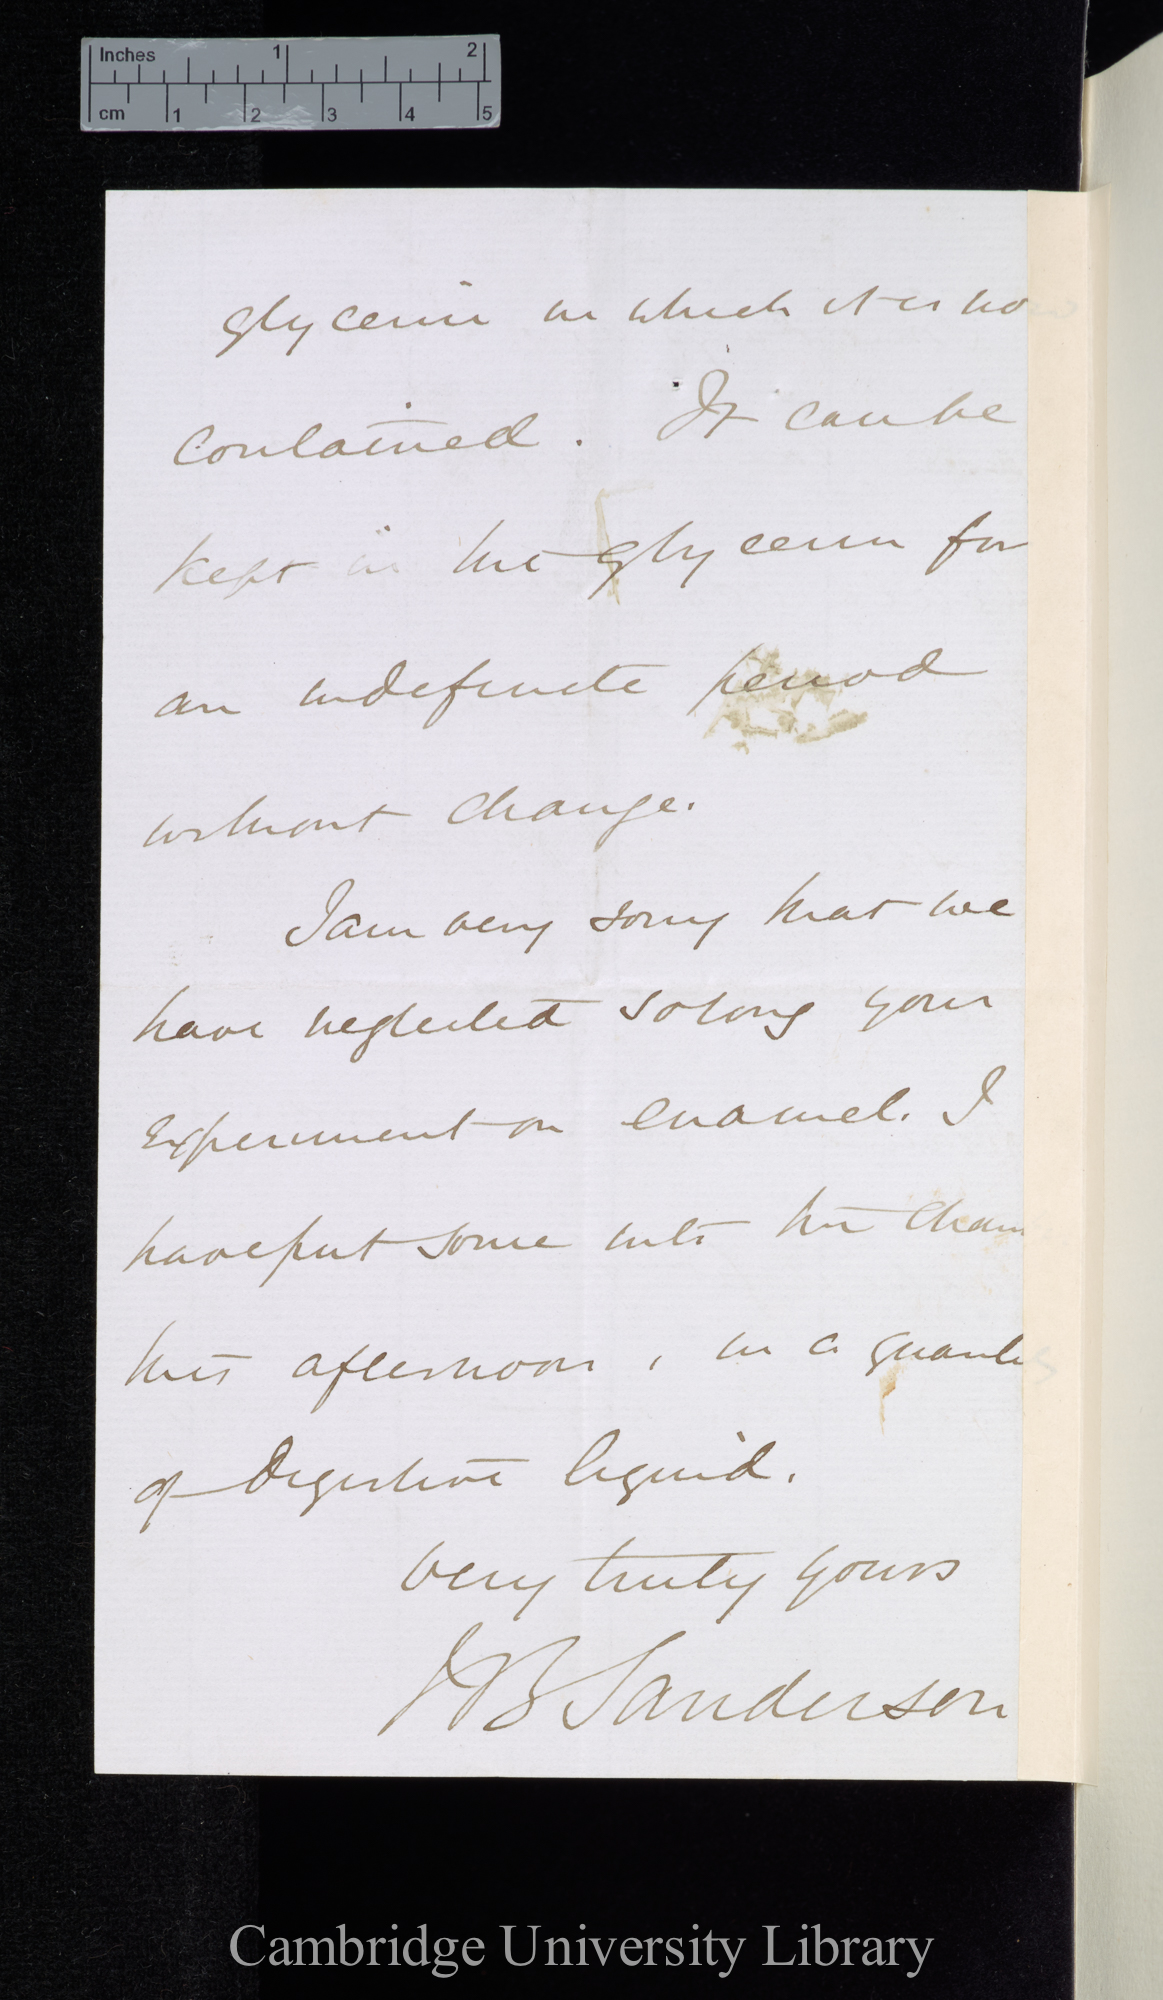 Inches 1 2
cm 1 2 3 4 5
glycerin in which it is now
contained. It can be
kept in the glycerin for
an indefinite period
without change.
I am very sorry that we
have neglected so long your
experiment on enamel. I
have put some into the cham
this afternoon, in a quantity
of Digestive liquid.
very truly yours
J B Sanderson
Cambridge University Library